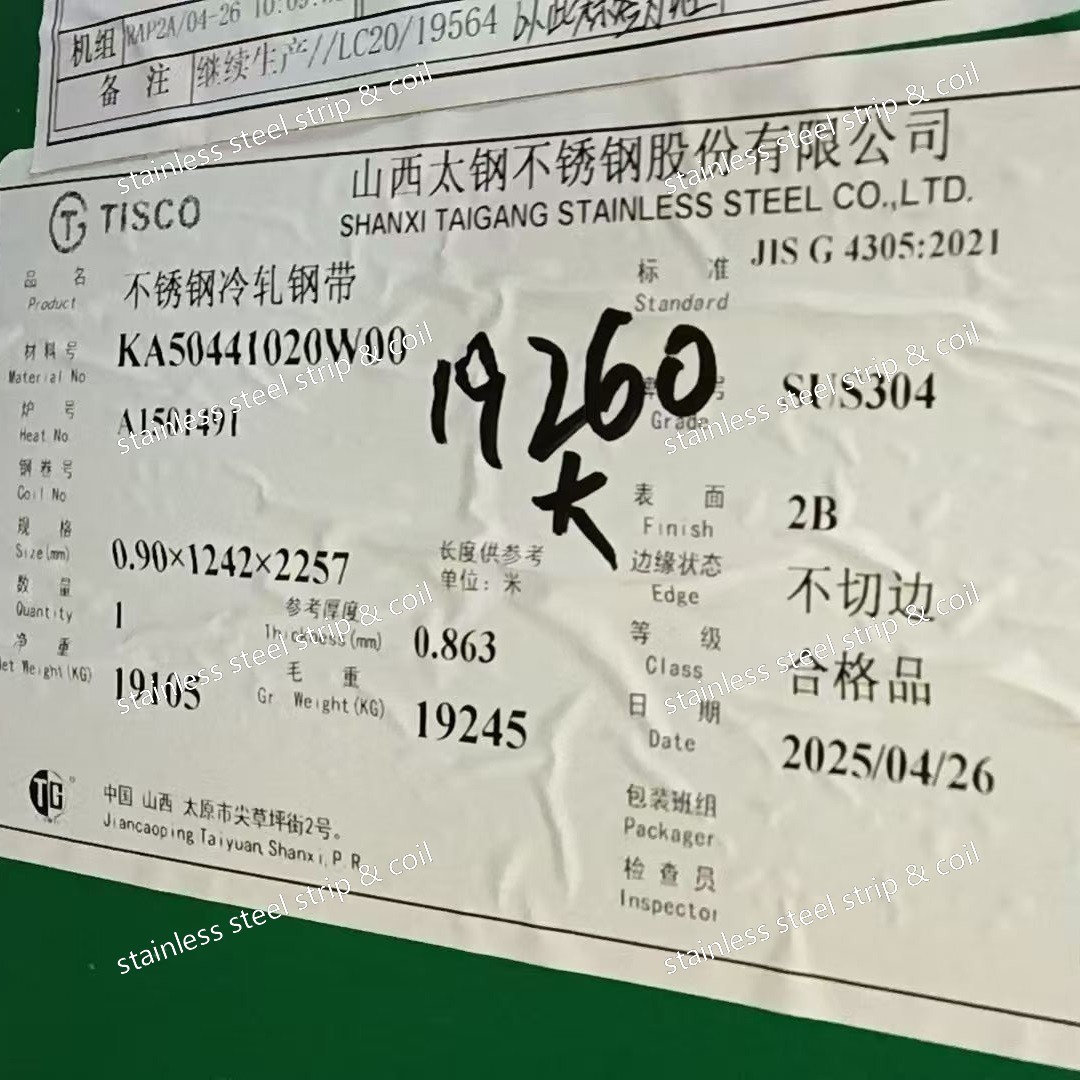 机组 RAP2A/04-26 10:09
备 注 继续生产//LC20/19564 以此标签为准
山西太钢不锈钢股份有限公司
TISCO
SHANXI TAIGANG STAINLESS STEEL CO.,LTD.
品 名 不锈钢冷轧钢带 标 准 JIS G 4305:2021
Product Standard
材料号 KA50441020W00 19260 号 SUS304
Material No Grade
炉 号 A1501491
Heat No.
大
钢卷号 表 面 2B
Coil No Finish
规 格 0.90×1242×2257 长度供参考 边缘状态 不切边
Size(mm) 单位：米 Edge
数 量 1 参考厚度 0.863 等 级 合格品
Quantity Thickness(mm) Class
净 重 19105 毛 重 19245 日 期 2025/04/26
Net Weight(KG) Gr Weight(KG) Date
包装班组
Packager
TG 中国 山西 太原市尖草坪街2号。
Jiancaoping Taiyuan, Shanxi, P.R
检查员
Inspector
stainless steel strip & coil
stainless steel strip & coil
stainless steel strip & coil
stainless steel strip & coil
stainless steel strip & coil
stainless steel strip & coil
stainless steel strip & coil
stainless steel strip & coil